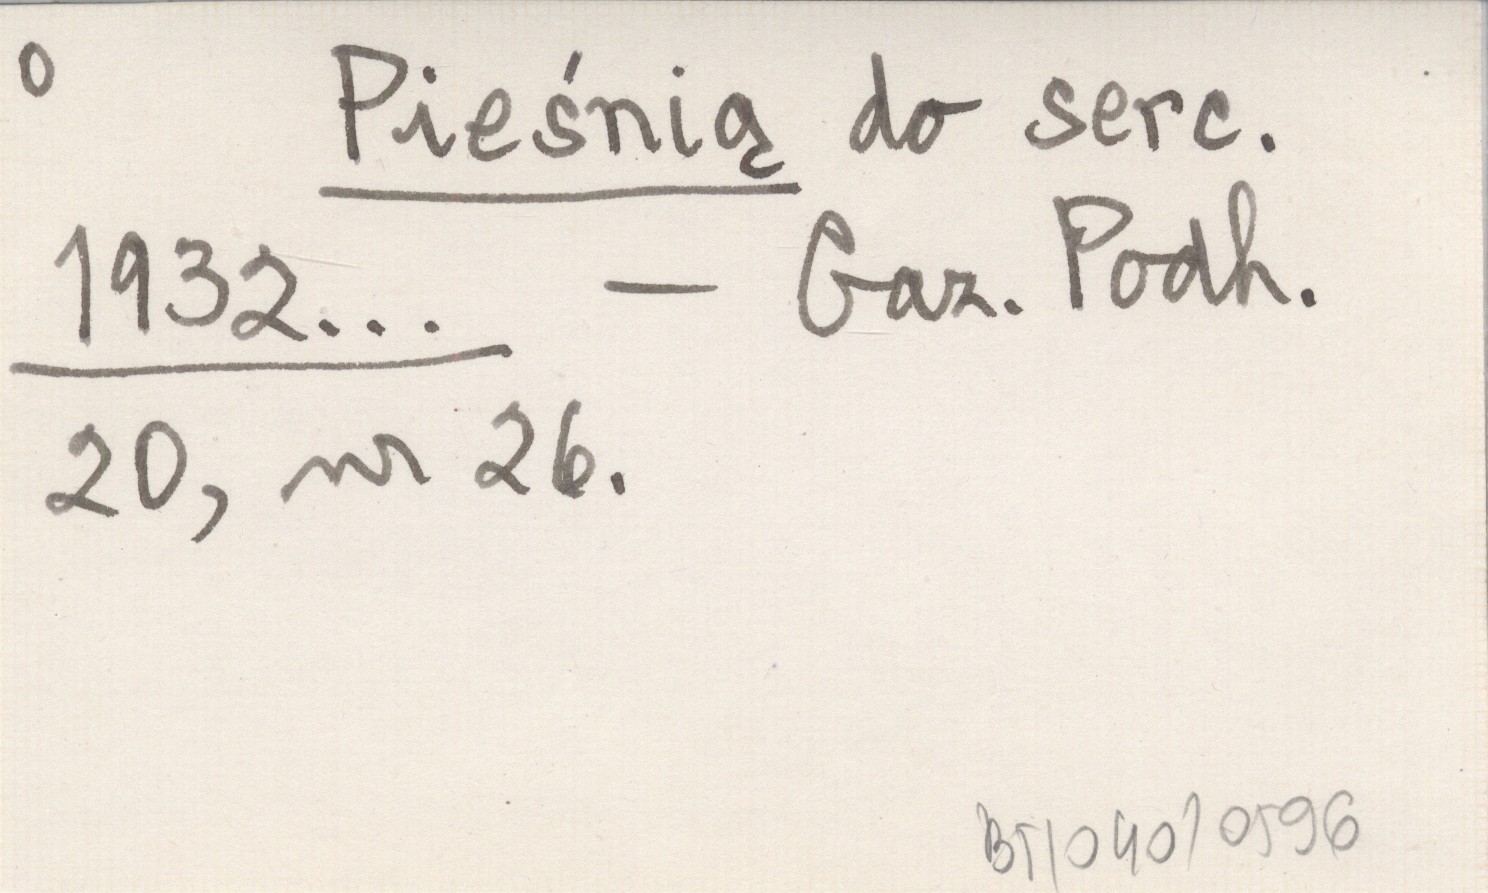 0 Pieśnią do serc.
1932... — Gaz. Podh.
20, nr 26.
BT/040/0596